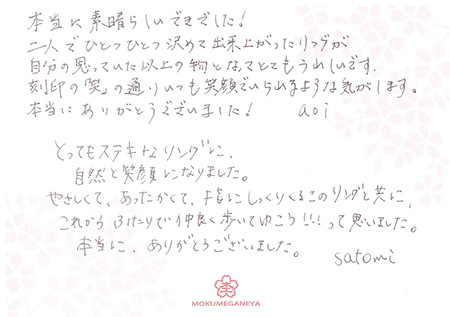 本当に素晴らしいできでした!
二人でひとつひとつ決めて出来上がったリングが
自分の思っていた以上の物となってとてもうれしいです.
刻印の「笑」の通りいつも笑顔でいられるような気がします。
本当にありがとうございました! aoi
とってもステキなリングに、
自然と笑顔になりました。
やさしくて、あったかくて、指にしっくりくるこのリングと共に、
これから ふたりで仲良く歩いてゆこう!!! って思いました。
本当に、ありがとうございました。 satomi
MOKUMEGANEYA